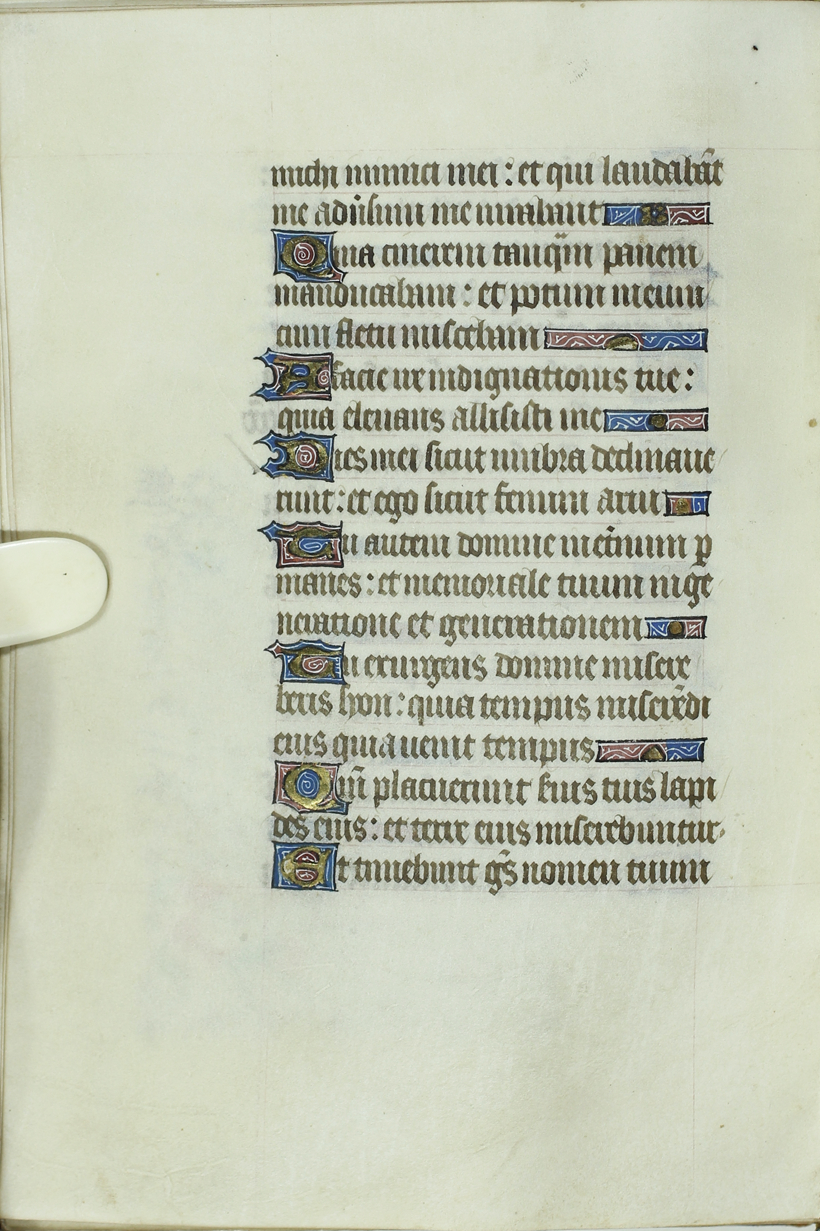 michi inimici mei : et qui laudabāt
me adūsum me iurabant
Quia cinerem tanq̃m panem
manducabam : et potum meum
cum fletu miscebam
A facie ire indignationis tue :
quia eleuans allisisti me
Dies mei sicut umbra declinaue
runt : et ego sicut fenum arui
Tu autem domine in et̃num p̱
manes : et memoriale tuum in ge
neratione et generationem
Tu exurgens domine misere
beris syon : quia tempus miserēdi
eius quia uenit tempus
Qm̄ placuerunt ẜuis tuis lapi
des eius : et terre eius miserebuntur.
Et timebunt gñs nomen tuum